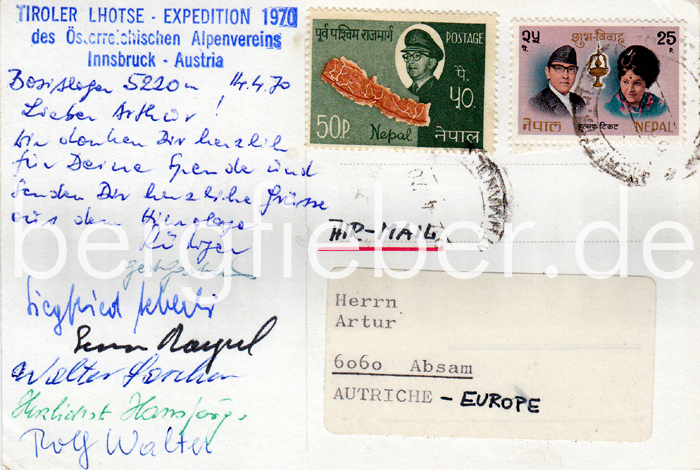 TIROLER LHOTSE - EXPEDITION 1970
des Österreichischen Alpenvereins
Innsbruck - Austria
Basislager 5220m 14.4.70
Lieber Arthur!
Wir danken Dir herzlich
für Deine Spende und
senden Dir herzliche Grüsse
aus dem Himalaya
Siegfried
Walter
Herzlichst Hansjörg
Rolf Walter
पूर्व पश्चिम राजमार्ग
POSTAGE
पै.
५०
50P.
Nepal
नेपाल
२५
प.
शुभ-विवाह
25
P.
नेपाल
हुलाक टिकट
NEPAL
AIR-MAIL
Herrn
Artur
6060 Absam
AUTRICHE - EUROPE
bergfieber.de